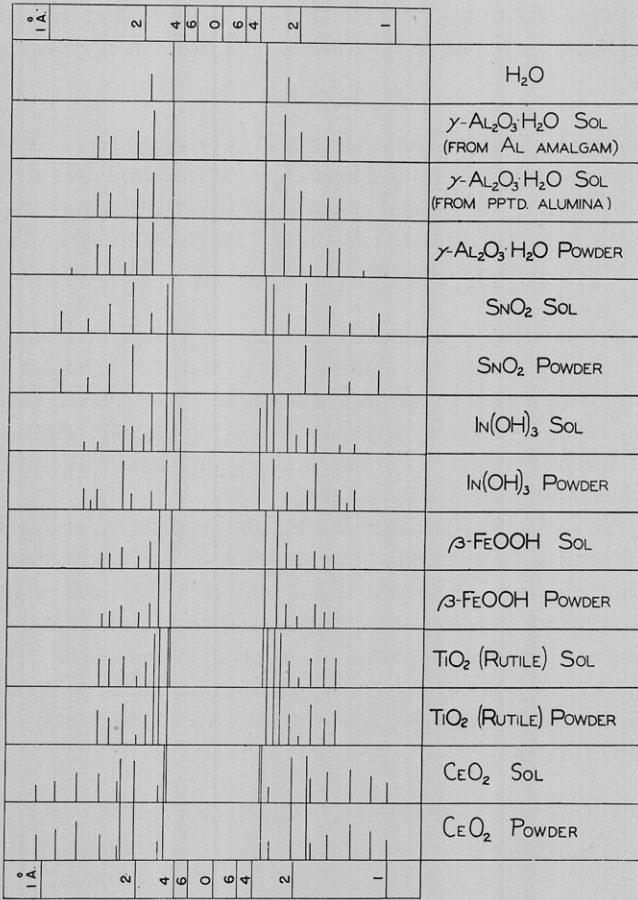 1 Å. 2 4 6 0 6 4 2 1
H₂O
γ-Al₂O₃·H₂O Sol
(from Al amalgam)
γ-Al₂O₃·H₂O Sol
(from pptd. alumina)
γ-Al₂O₃·H₂O Powder
SnO₂ Sol
SnO₂ Powder
In(OH)₃ Sol
In(OH)₃ Powder
β-FeOOH Sol
β-FeOOH Powder
TiO₂ (Rutile) Sol
TiO₂ (Rutile) Powder
CeO₂ Sol
CeO₂ Powder
1 Å. 2 4 6 0 6 4 2 1